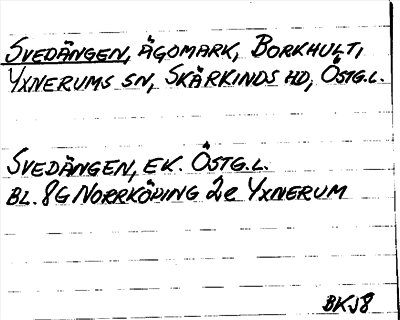 SVEDÄNGEN, ÄGOMARK, BORKHULT,
YXNERUMS SN, SKÄRKINDS HD, ÖSTG.L.
SVEDÄNGEN, EK. ÖSTG.L.
BL. 8G NORRKÖPING 2e YXNERUM
BKJ8